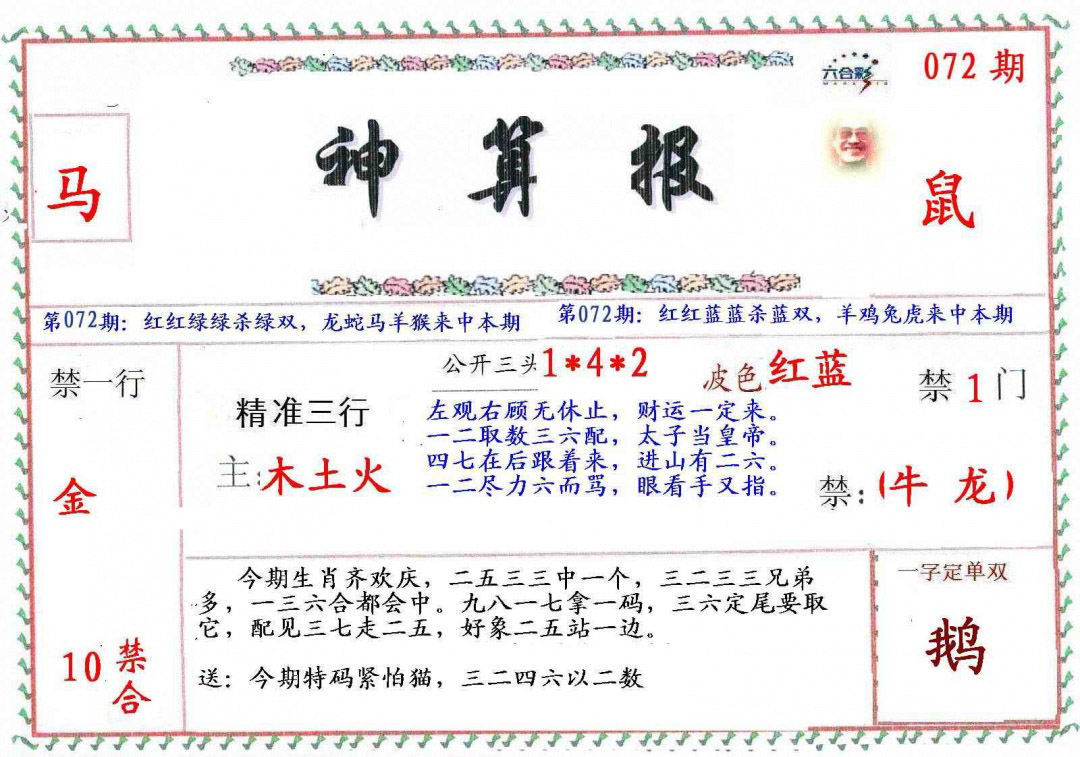 六合彩
072 期
马
神算报
鼠
第072期：红红绿绿杀绿双，龙蛇马羊猴来中本期
第072期：红红蓝蓝杀蓝双，羊鸡兔虎来中本期
禁一行
金
10 禁合
精准三行
主:木土火
公开三头1*4*2
波色红蓝
左观右顾无休止，财运一定来。
一二取数三六配，太子当皇帝。
四七在后跟着来，进山有二六。
一二尽力六而骂，眼看手又指。
禁 1 门
禁:(牛 龙)
今期生肖齐欢庆，二五三三中一个，三二三三兄弟
多，一三六合都会中。九八一七拿一码，三六定尾要取
它，配见三七走二五，好象二五站一边。
送：今期特码紧怕猫，三二四六以二数
一字定单双
鹅